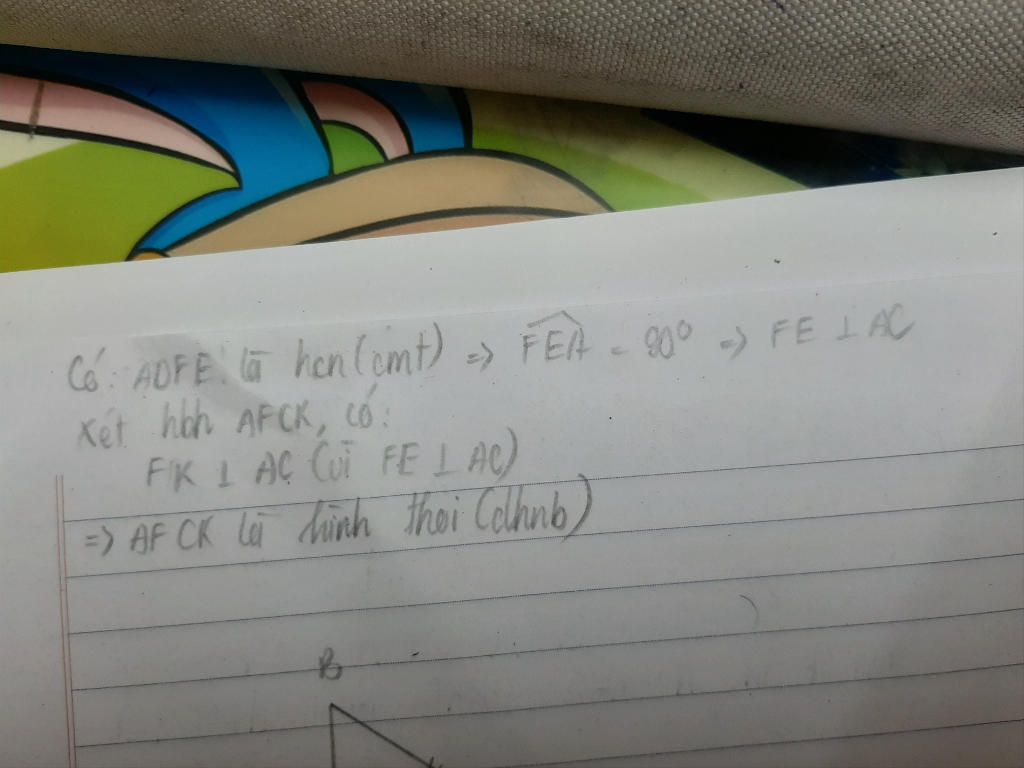 Có: ADFE là hcn (cmt) => \widehat{FEA} = 90° => FE ⊥ AC
Xét hbh AFCK, có:
FK ⊥ AC (vì FE ⊥ AC)
=> AFCK là hình thoi (dhnb)
B